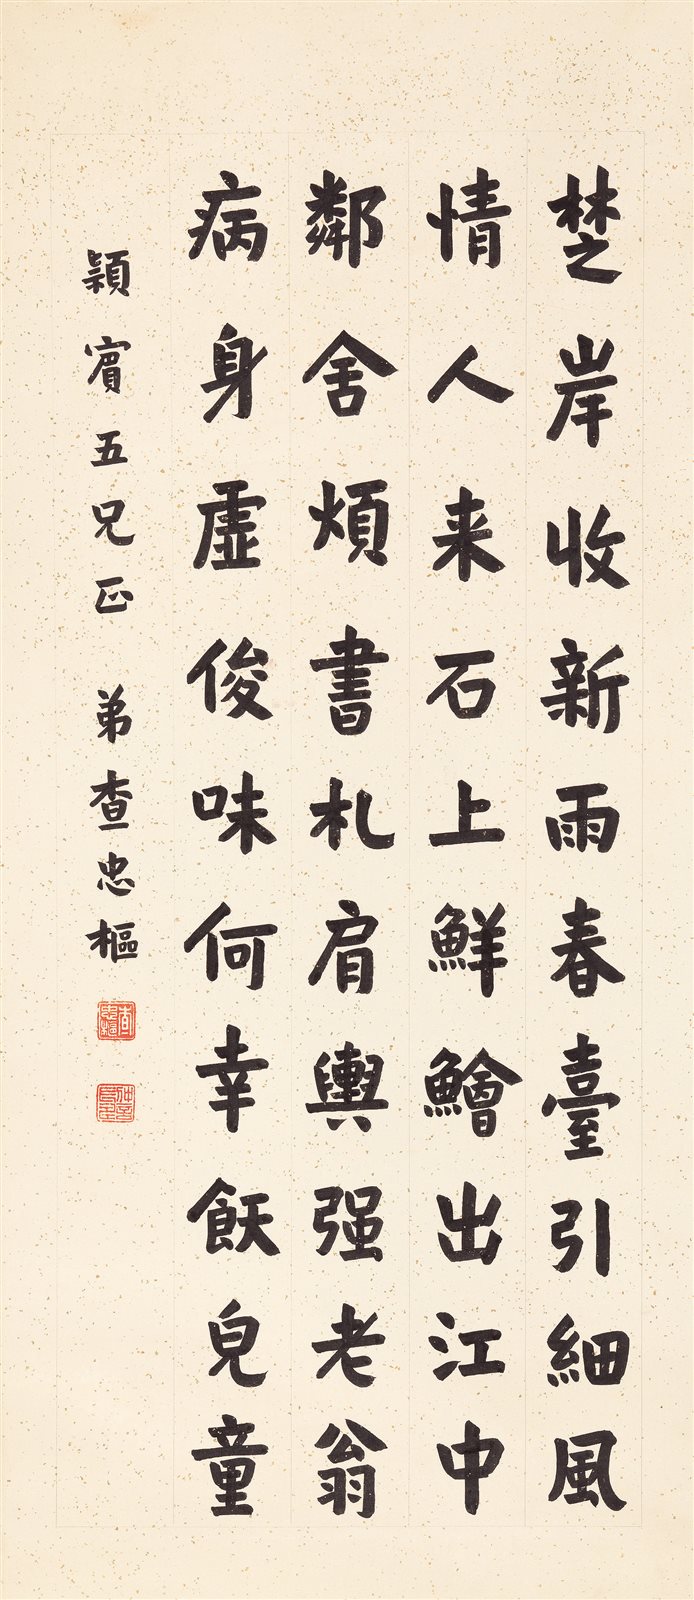 楚岸收新雨春臺引細風
情人来石上鮮鱠出江中
鄰舍煩書札肩輿强老翁
病身虛俊味何幸飫兒童
穎賓五兄正 弟查忠樞
查忠樞